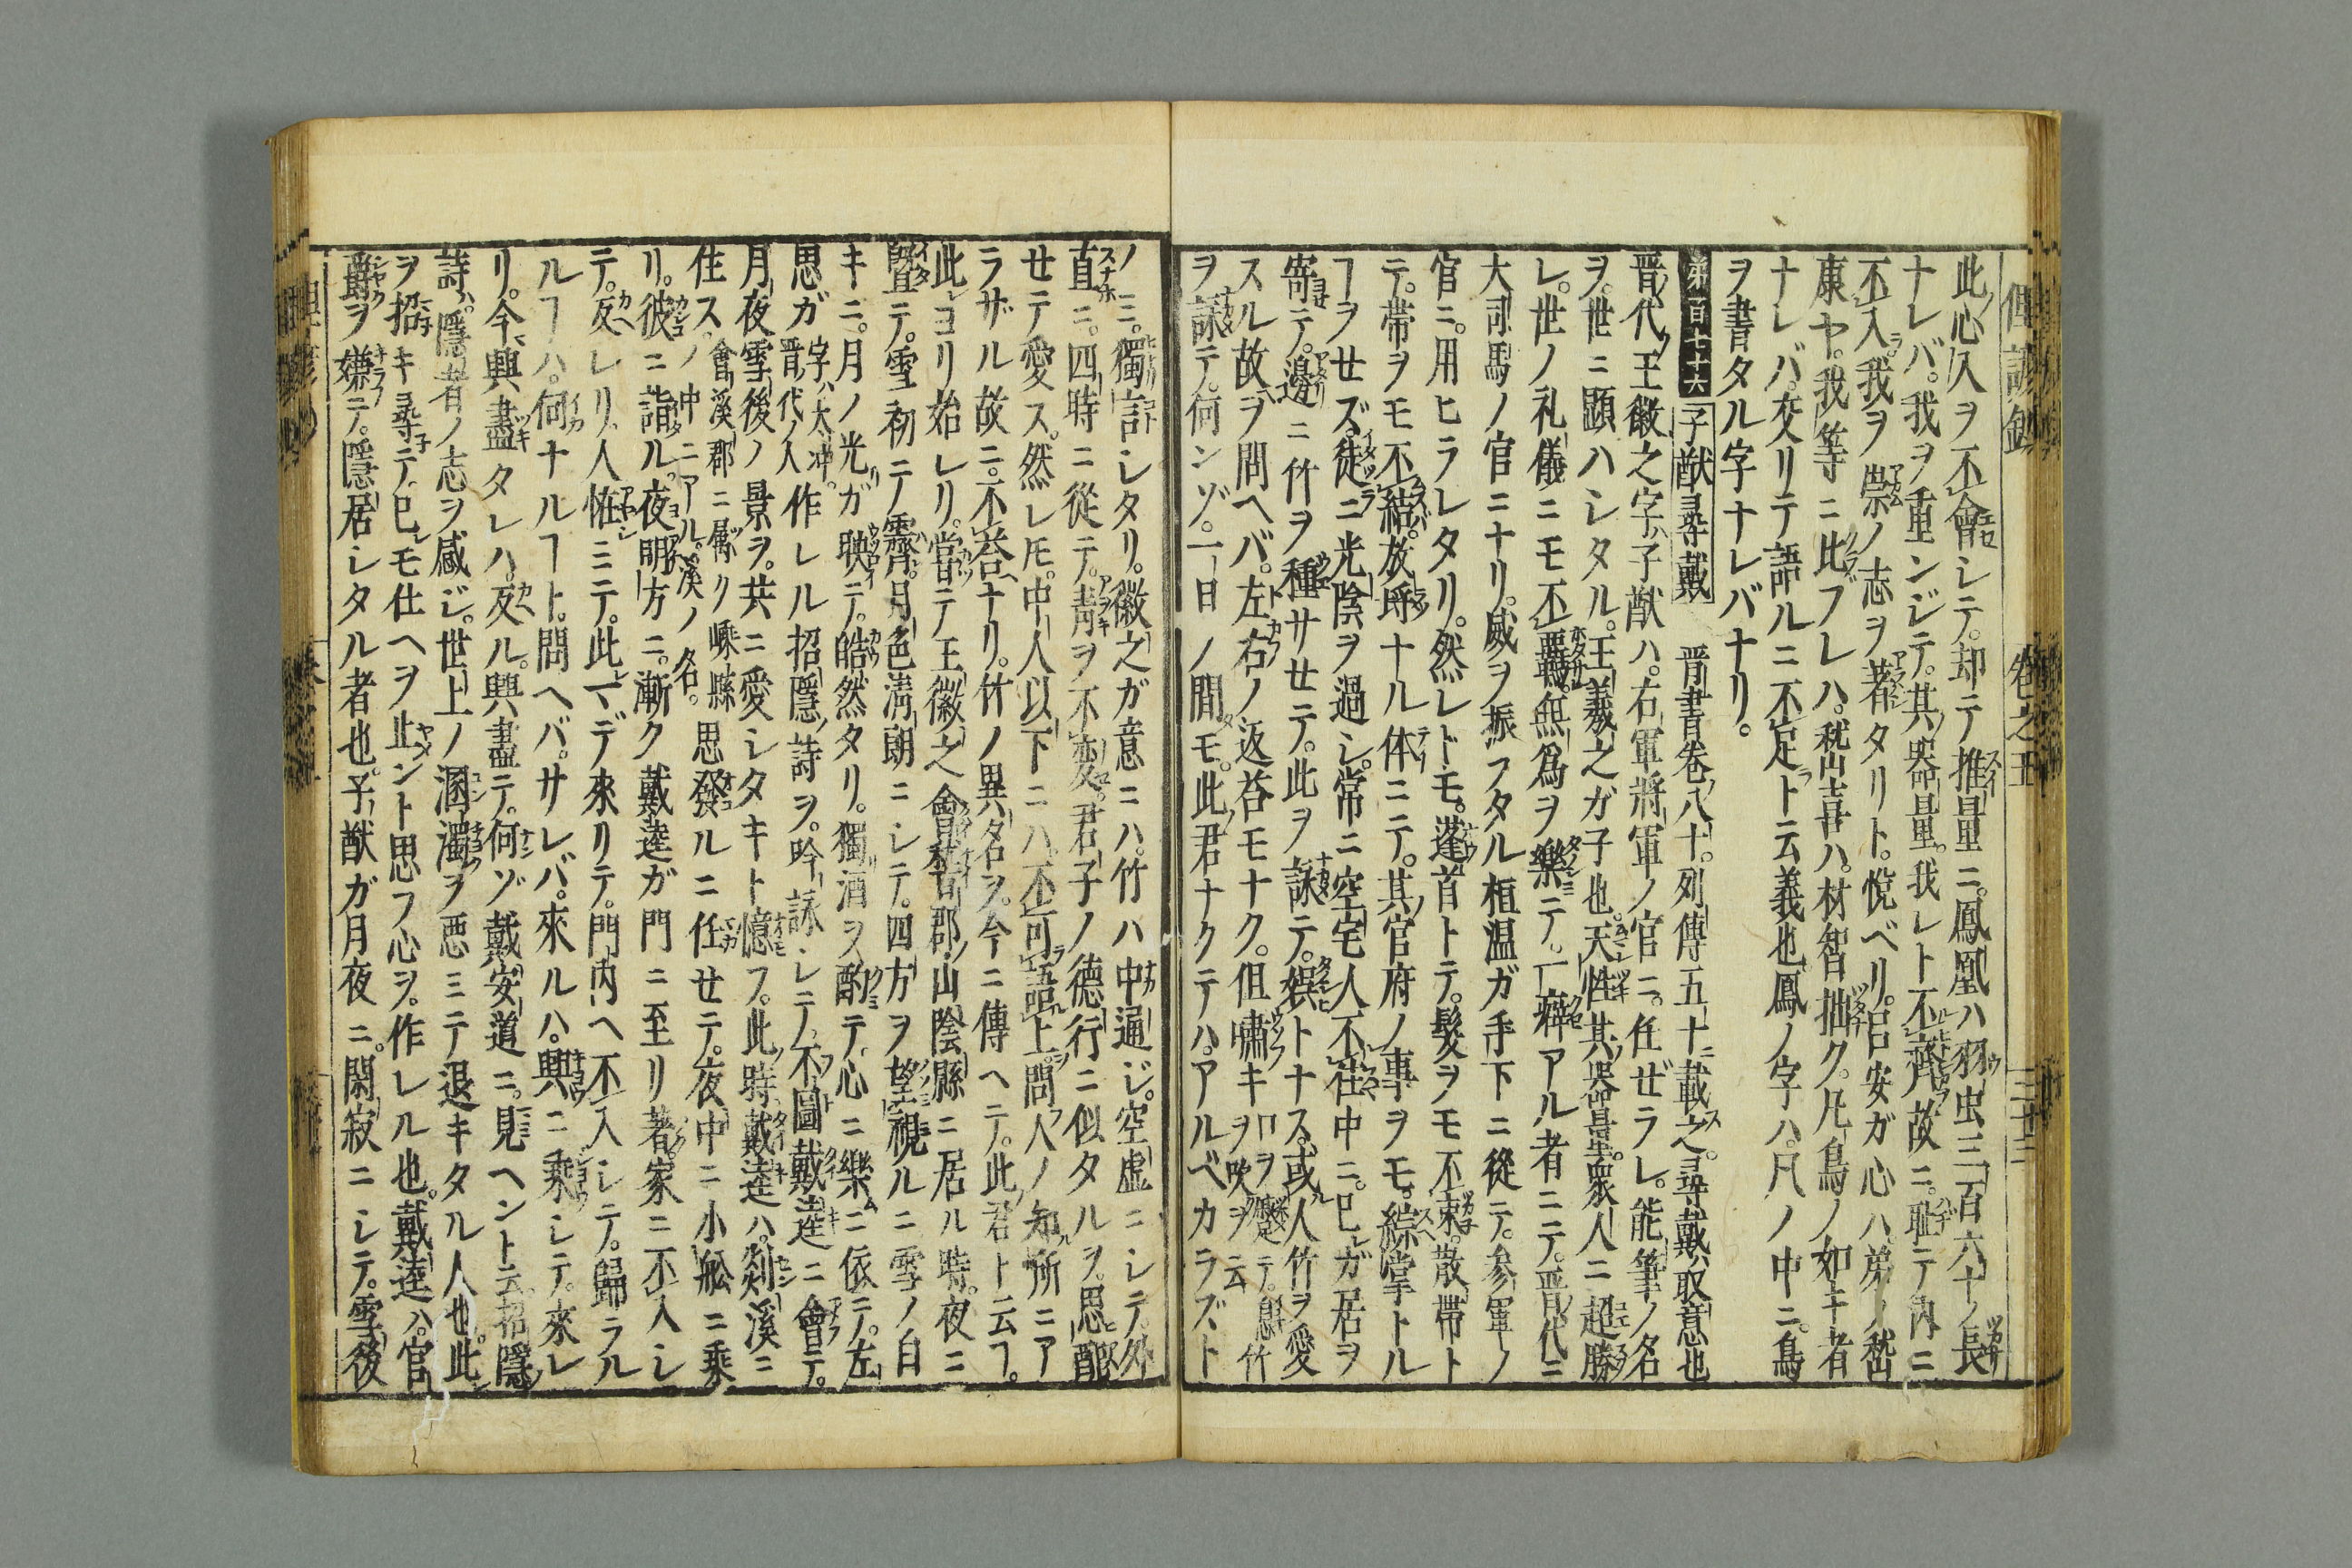 此心久ヲ不會シテ。却テ推量ニ。鳳凰ハ羽虫三百六十ノ長
ナレバ。我ヲ重ンジテ。其器量。我レト不齊故ニ。耻テ内ニ
不入。我ヲ崇ノ志ヲ著タリト。悅ベリ。呂安ガ心ハ。弟ノ嵆
康ヤ。我等ニ此ブレハ。嵆喜ハ。材智拙ク。凡鳥ノ如キ者
ナレバ。交リテ語ルニ不足ト云義也。鳳ノ字ハ。凡ノ中ニ。鳥
ヲ書タル字ナレバナリ。
第百七十六 子猷尋戴 晋書卷八十。列傳五十ニ載之。尋戴ハ取意也
晋代王徽之字ハ子猷ハ。右軍將軍ノ官ニ。任ぜラレ。能筆ノ名
ヲ。世ニ顯ハシタル。王羲之ガ子也。天性其器量。衆人ニ超勝
レ。世ノ礼儀ニモ不羈。無爲ヲ樂ミテ。一癖アル者ニテ。晋代ニ
大司馬ノ官ニナリ。威ヲ振フタル桓温ガ手下ニ從テ。参軍ノ
官ニ。用ヒラレタリ。然レトモ。蓬首トテ。髮ヲモ不束。散帯ト
テ。帯ヲモ不結。放埓ナル体ニテ。其官府ノ事ヲモ。綜掌トル
ヿヲせズ。徒ニ光陰ヲ過シ。常ニ空宅人不住中ニ。已ガ居ヲ
寄テ。邊ニ竹ヲ種サせテ。此ヲ詠テ。娯トナス。或人竹ヲ愛
スル故ヲ問ヘバ。左右ノ返荅モナク。但嘯キ口ヲ蹙テ。息ヲ吹ヲ云竹
ヲ詠テ。何ンゾ。一日ノ間モ。此君ナクテハ。アルベカラズト
ノミ。獨言シタリ。徽之ガ意ニハ。竹ハ中通ジ。空虚ニシテ。外
直ニ。四時ニ從テ。青ヲ不変。君子ノ德行ニ似タルヲ。思配
せテ愛ス。然レ𪜈。中人以下ニハ。不可語上。問人ノ知所ニア
ラザル故ニ。不荅ナリ。竹ノ異名ヲ。今ニ傳ヘテ。此君ト云フ。
此ヨリ始レリ。甞テ王徽之會稽郡山陰縣ニ居ル時。夜ニ
曁テ。雪初テ霽。月色淸朗ニシテ。四方ヲ望視ルニ雪ノ白
キニ。月ノ光ガ映テ。皓然タリ。獨酒ヲ酌テ。心ニ樂ニ依テ。左
思ガ字ハ太冲。晋代ノ人作レル招隱ノ詩ヲ。吟詠シテ。不圖戴逵ニ會テ。
月夜雪後ノ景ヲ。共ニ愛シタキト憶フ。此時戴逵ハ。剡溪ニ
住ス。會溪郡ニ属ク嵊縣ノ中ニアル。溪ノ名。思發ルニ任せテ。夜中ニ小舩ニ乘
リ。彼ニ詣ル。夜明方ニ。漸ク戴逵ガ門ニ至リ著。家ニ不入シ
テ。反レリ。人恠ミテ。此マデ來リテ。門内ヘ不入シテ。歸ラル
ルヿハ。何ナルヿト。問ヘバ。サレバ。來ルハ。興ニ乘シテ。來レ
リ。今興盡タレハ。反ル。興盡テ。何ゾ戴安道ニ。見ヘント云。招隱
詩ハ。隱者ノ志ヲ感ジ。世上ノ溷濁ヲ悪ミテ退キタル人也。此
ヲ招キ尋テ。已モ仕ヘヲ止ント思フ心ヲ。作レル也。戴逵ハ。官
爵ヲ嫌テ。隱居シタル者也。子猷ガ月夜ニ。閑寂ニシテ。雪後